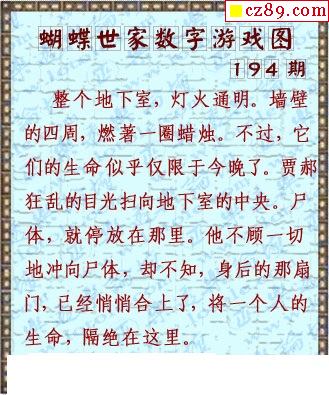 cz89.com
蝴蝶世家数字游戏图
194期
整个地下室，灯火通明。墙壁
的四周，燃著一圈蜡烛。不过，它
们的生命似乎仅限于今晚了。贾郝
狂乱的目光扫向地下室的中央。尸
体，就停放在那里。他不顾一切
地冲向尸体，却不知，身后的那扇
门，已经悄悄合上了，将一个人的
生命，隔绝在这里。